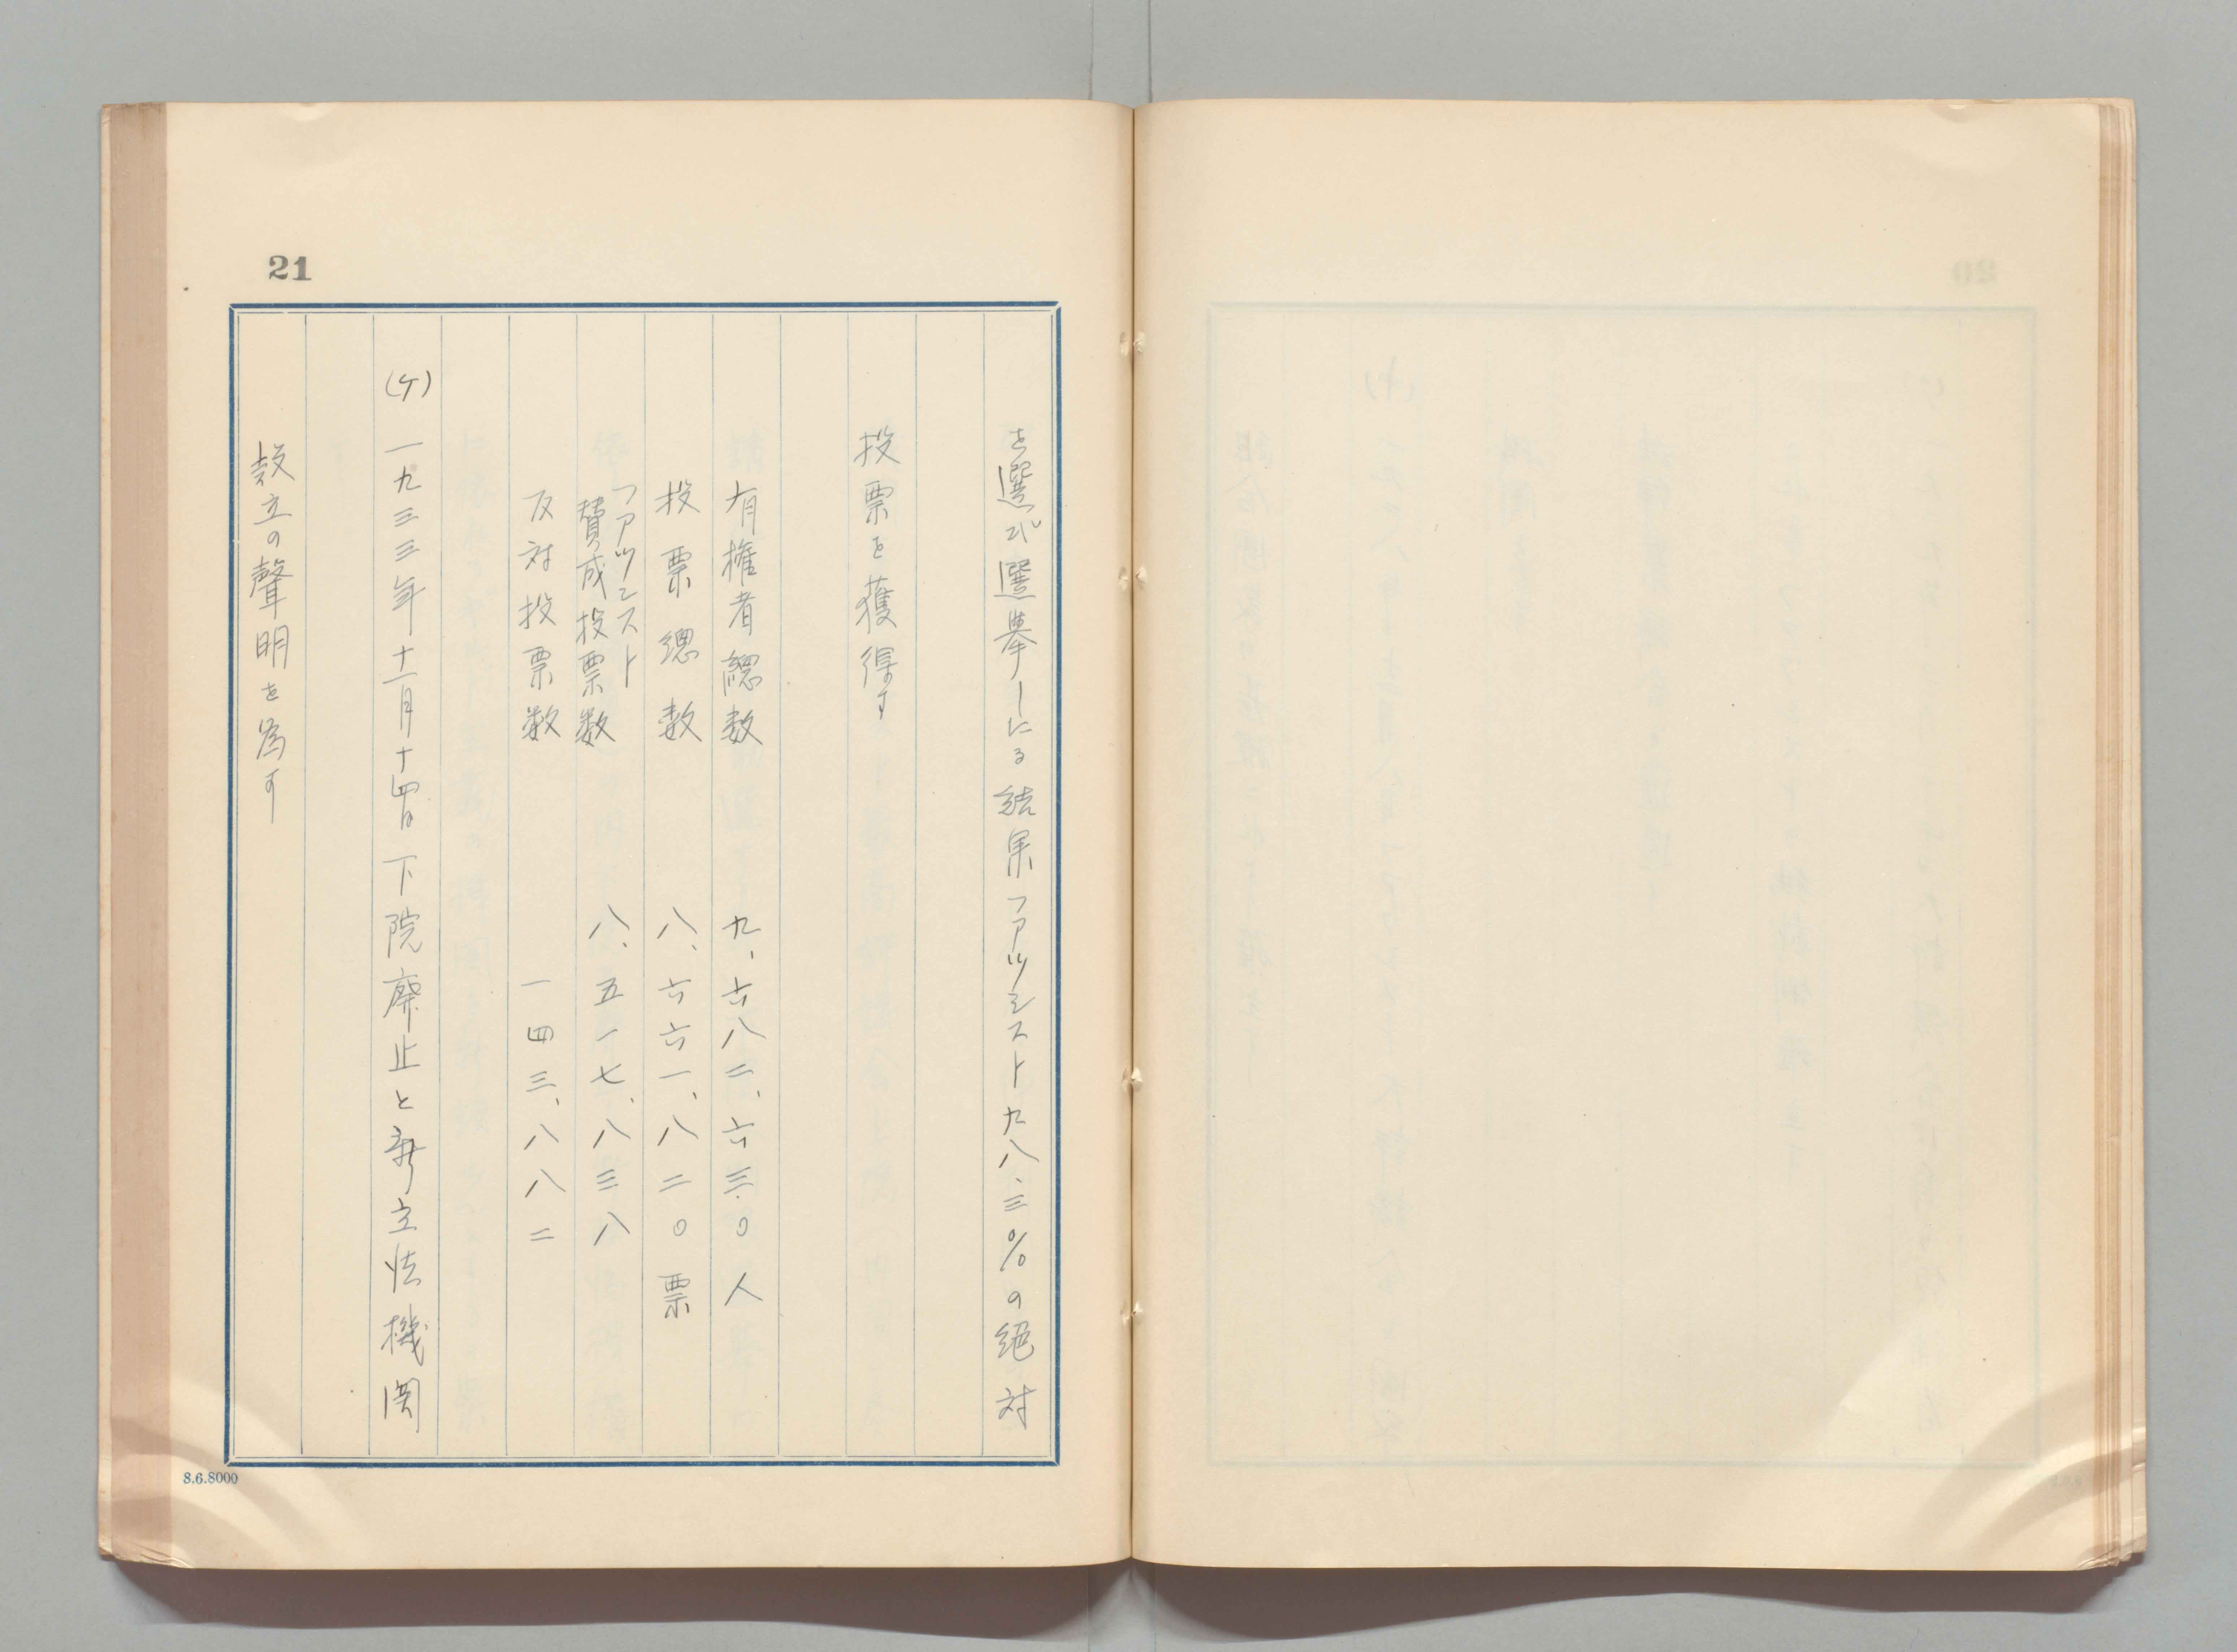 21
を選び選挙したる結果ファッシスト九八、三%の絶対
投票を獲得す
有権者總数 九、六八二、六三〇人
投票總数 八、六六一、八二〇票
ファッシスト
賛成投票数 八、五一七、八三八
反対投票数 一四三、八八二
(ケ) 一九三三年十一月十四日下院廃止と新立法機関
設立の聲明を為す
8.6.8000